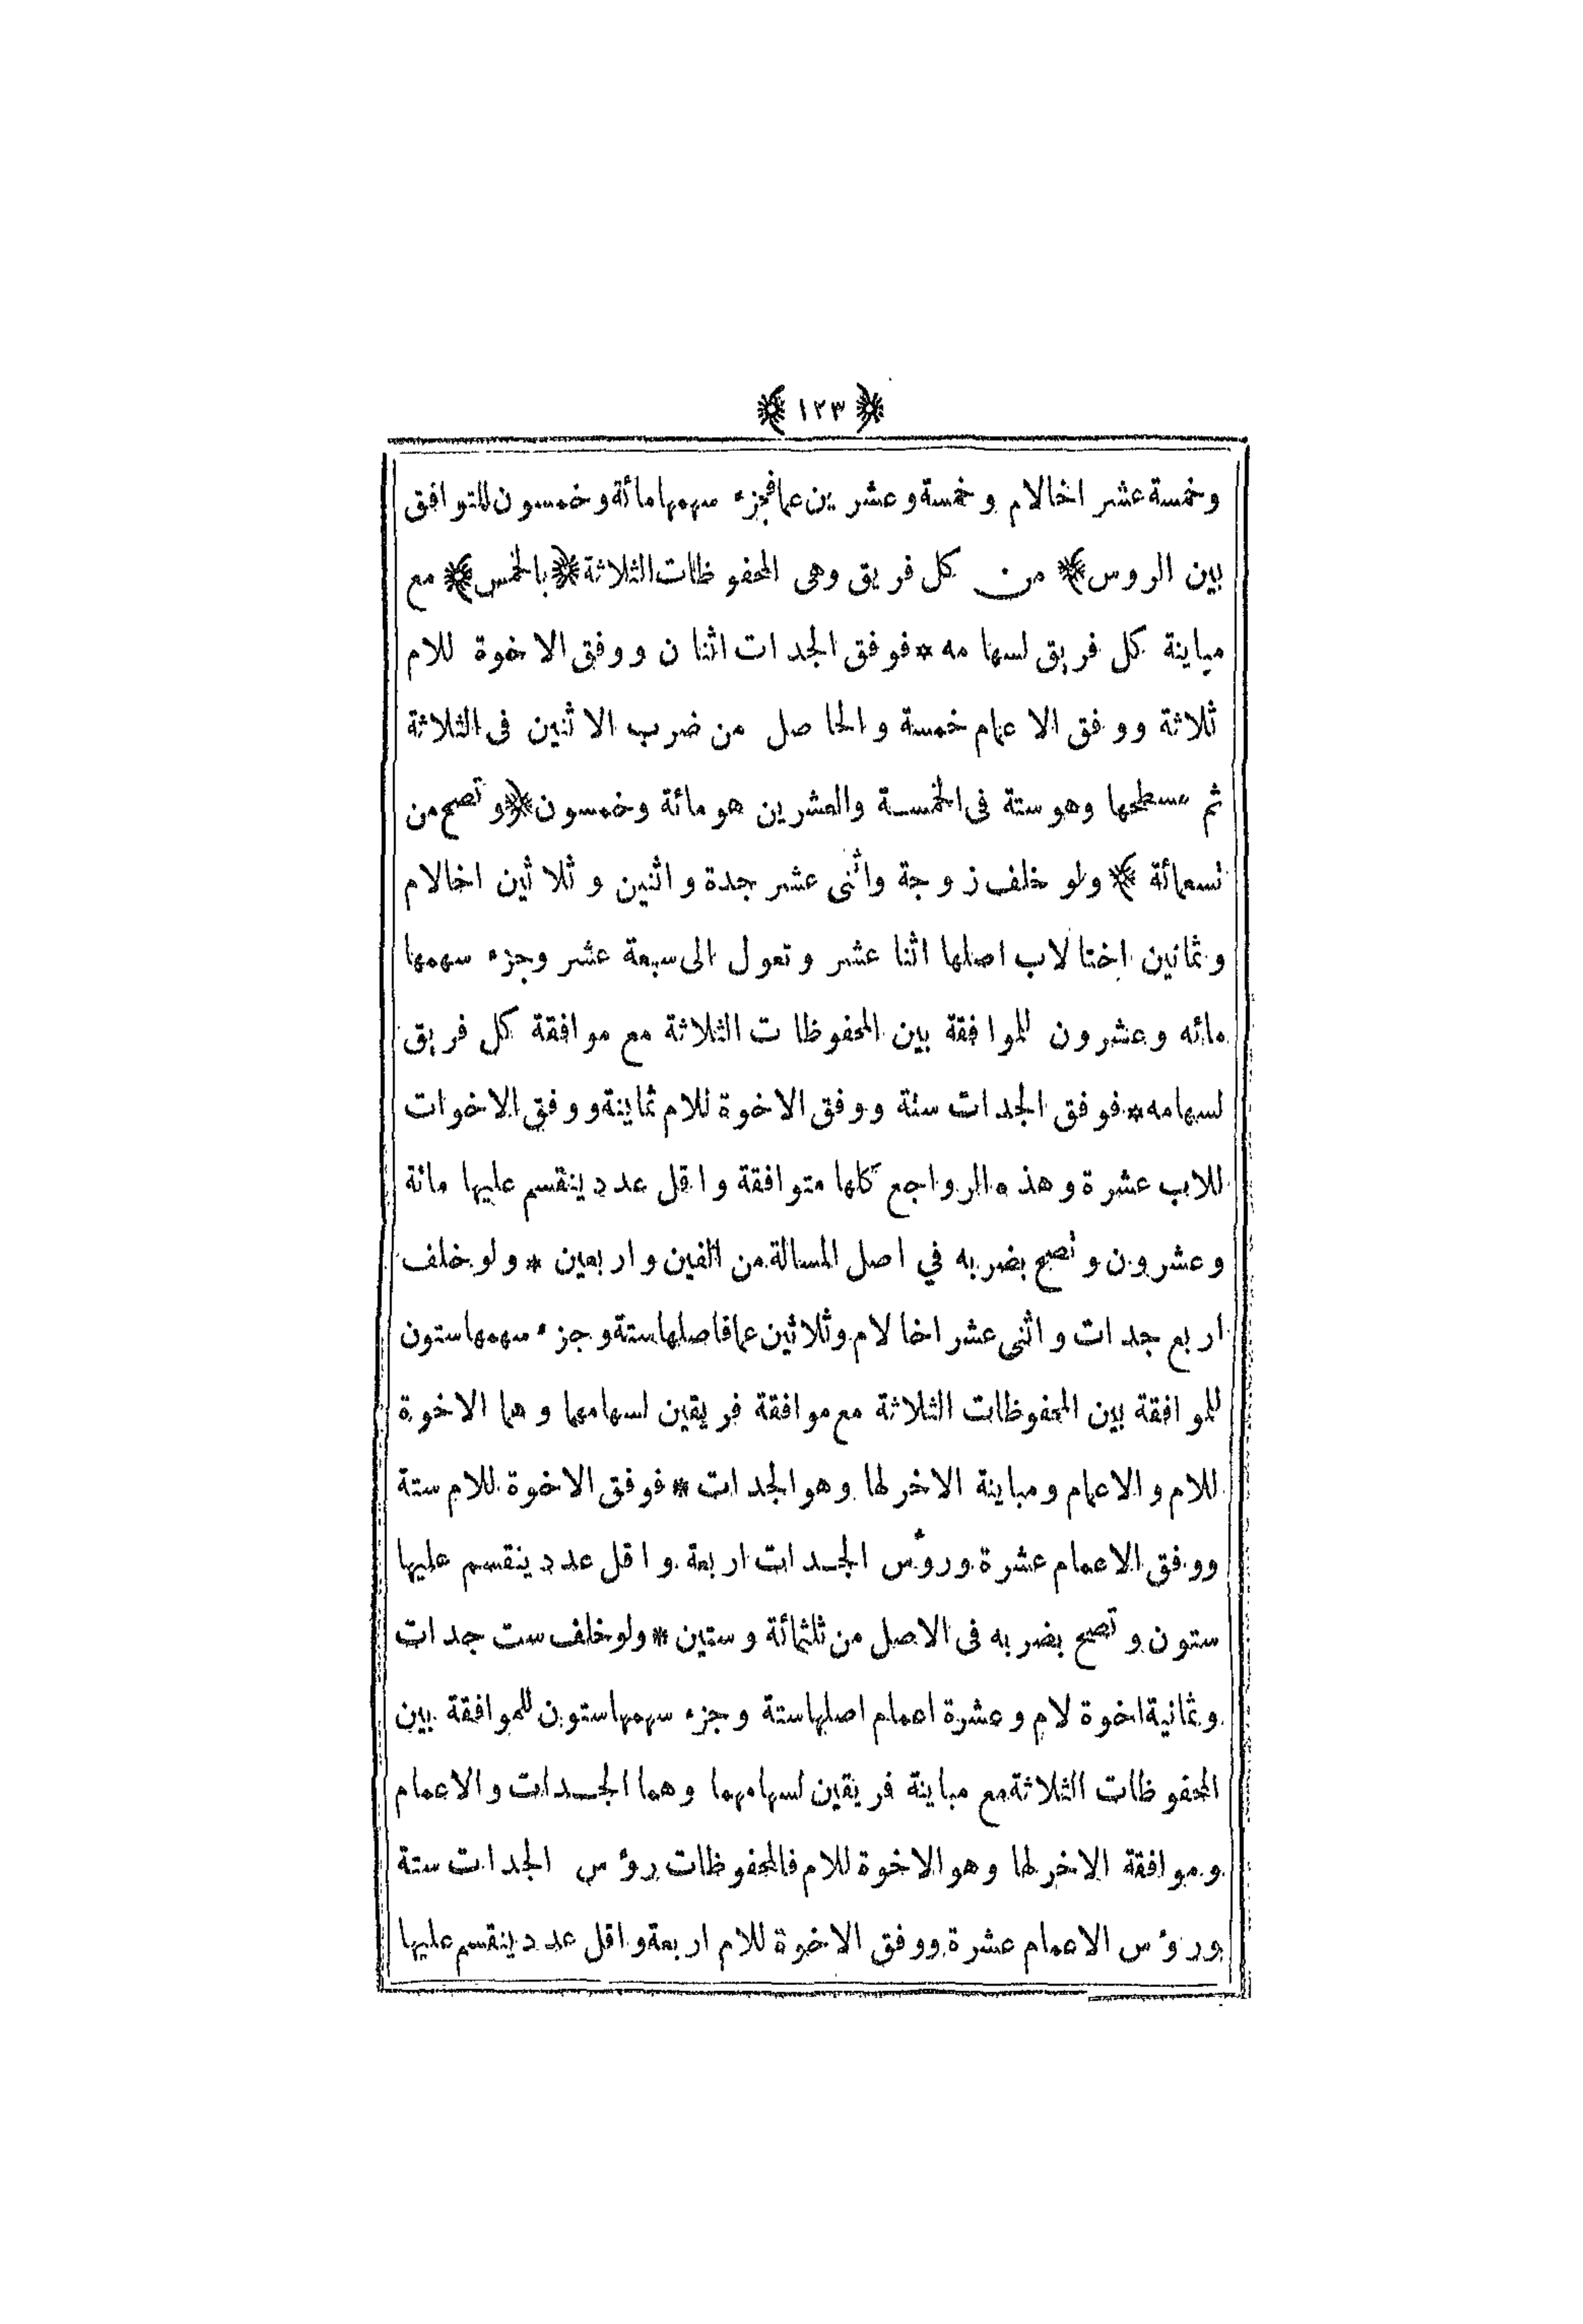 ﴿ ١٢٣ ﴾
وخمسة عشر اخالام وخمسة وعشرين عمافجزء سهمها مائة وخمسون للتوافق
بين الروس ﴾ من كل فريق وهى المحفوظات الثلاثة ﴿ بالخمس ﴾ مع
مباينة كل فريق لسهامه * فوفق الجدات اثنان ووفق الاخوة للام
ثلاثة ووفق الاعمام خمسة والحاصل من ضرب الاثنين فى الثلاثة
ثم مسطحها وهو ستة فى الخمسة والعشرين هو مائة وخمسون ﴿ وتصح من
تسعمائة ﴾ ولو خلف زوجة واثنى عشر جدة واثنين وثلاثين اخالام
وثمانين اختا لاب اصلها اثنا عشر وتعول الى سبعة عشر وجزء سهمها
مائه وعشرون للموافقة بين المحفوظات الثلاثة مع موافقة كل فريق
لسهامه * فوفق الجدات ستة ووفق الاخوة للام ثماينة ووفق الاخوات
للاب عشرة وهذه الرواجع كلها متوافقة واقل عدد ينقسم عليها مائة
وعشرون وتصح بضربه في اصل المسالة من الفين واربعين * ولو خلف
اربع جدات واثنى عشر اخا لام وثلاثين عمافاصلها ستة وجزء سهمها ستون
للموافقة بين المحفوظات الثلاثة مع موافقة فريقين لسهامهما وهما الاخوة
للام والاعمام ومباينة الاخر لها وهو الجدات * فوفق الاخوة للام ستة
ووفق الاعمام عشرة ورؤس الجدات اربعة واقل عدد ينقسم عليها
ستون وتصح بضربه فى الاصل من ثلثمائة وستين * ولو خلف ست جدات
وثمانية اخوة لام وعشرة اعمام اصلها ستة وجزء سهمها ستون للموافقة بين
المحفوظات الثلاثة مع مباينة فريقين لسهامهما وهما الجدات والاعمام
وموافقة الاخر لها وهو الاخوة للام فالمحفوظات رؤس الجدات ستة
ورؤس الاعمام عشرة ووفق الاخوة للام اربعة واقل عدد ينقسم عليها